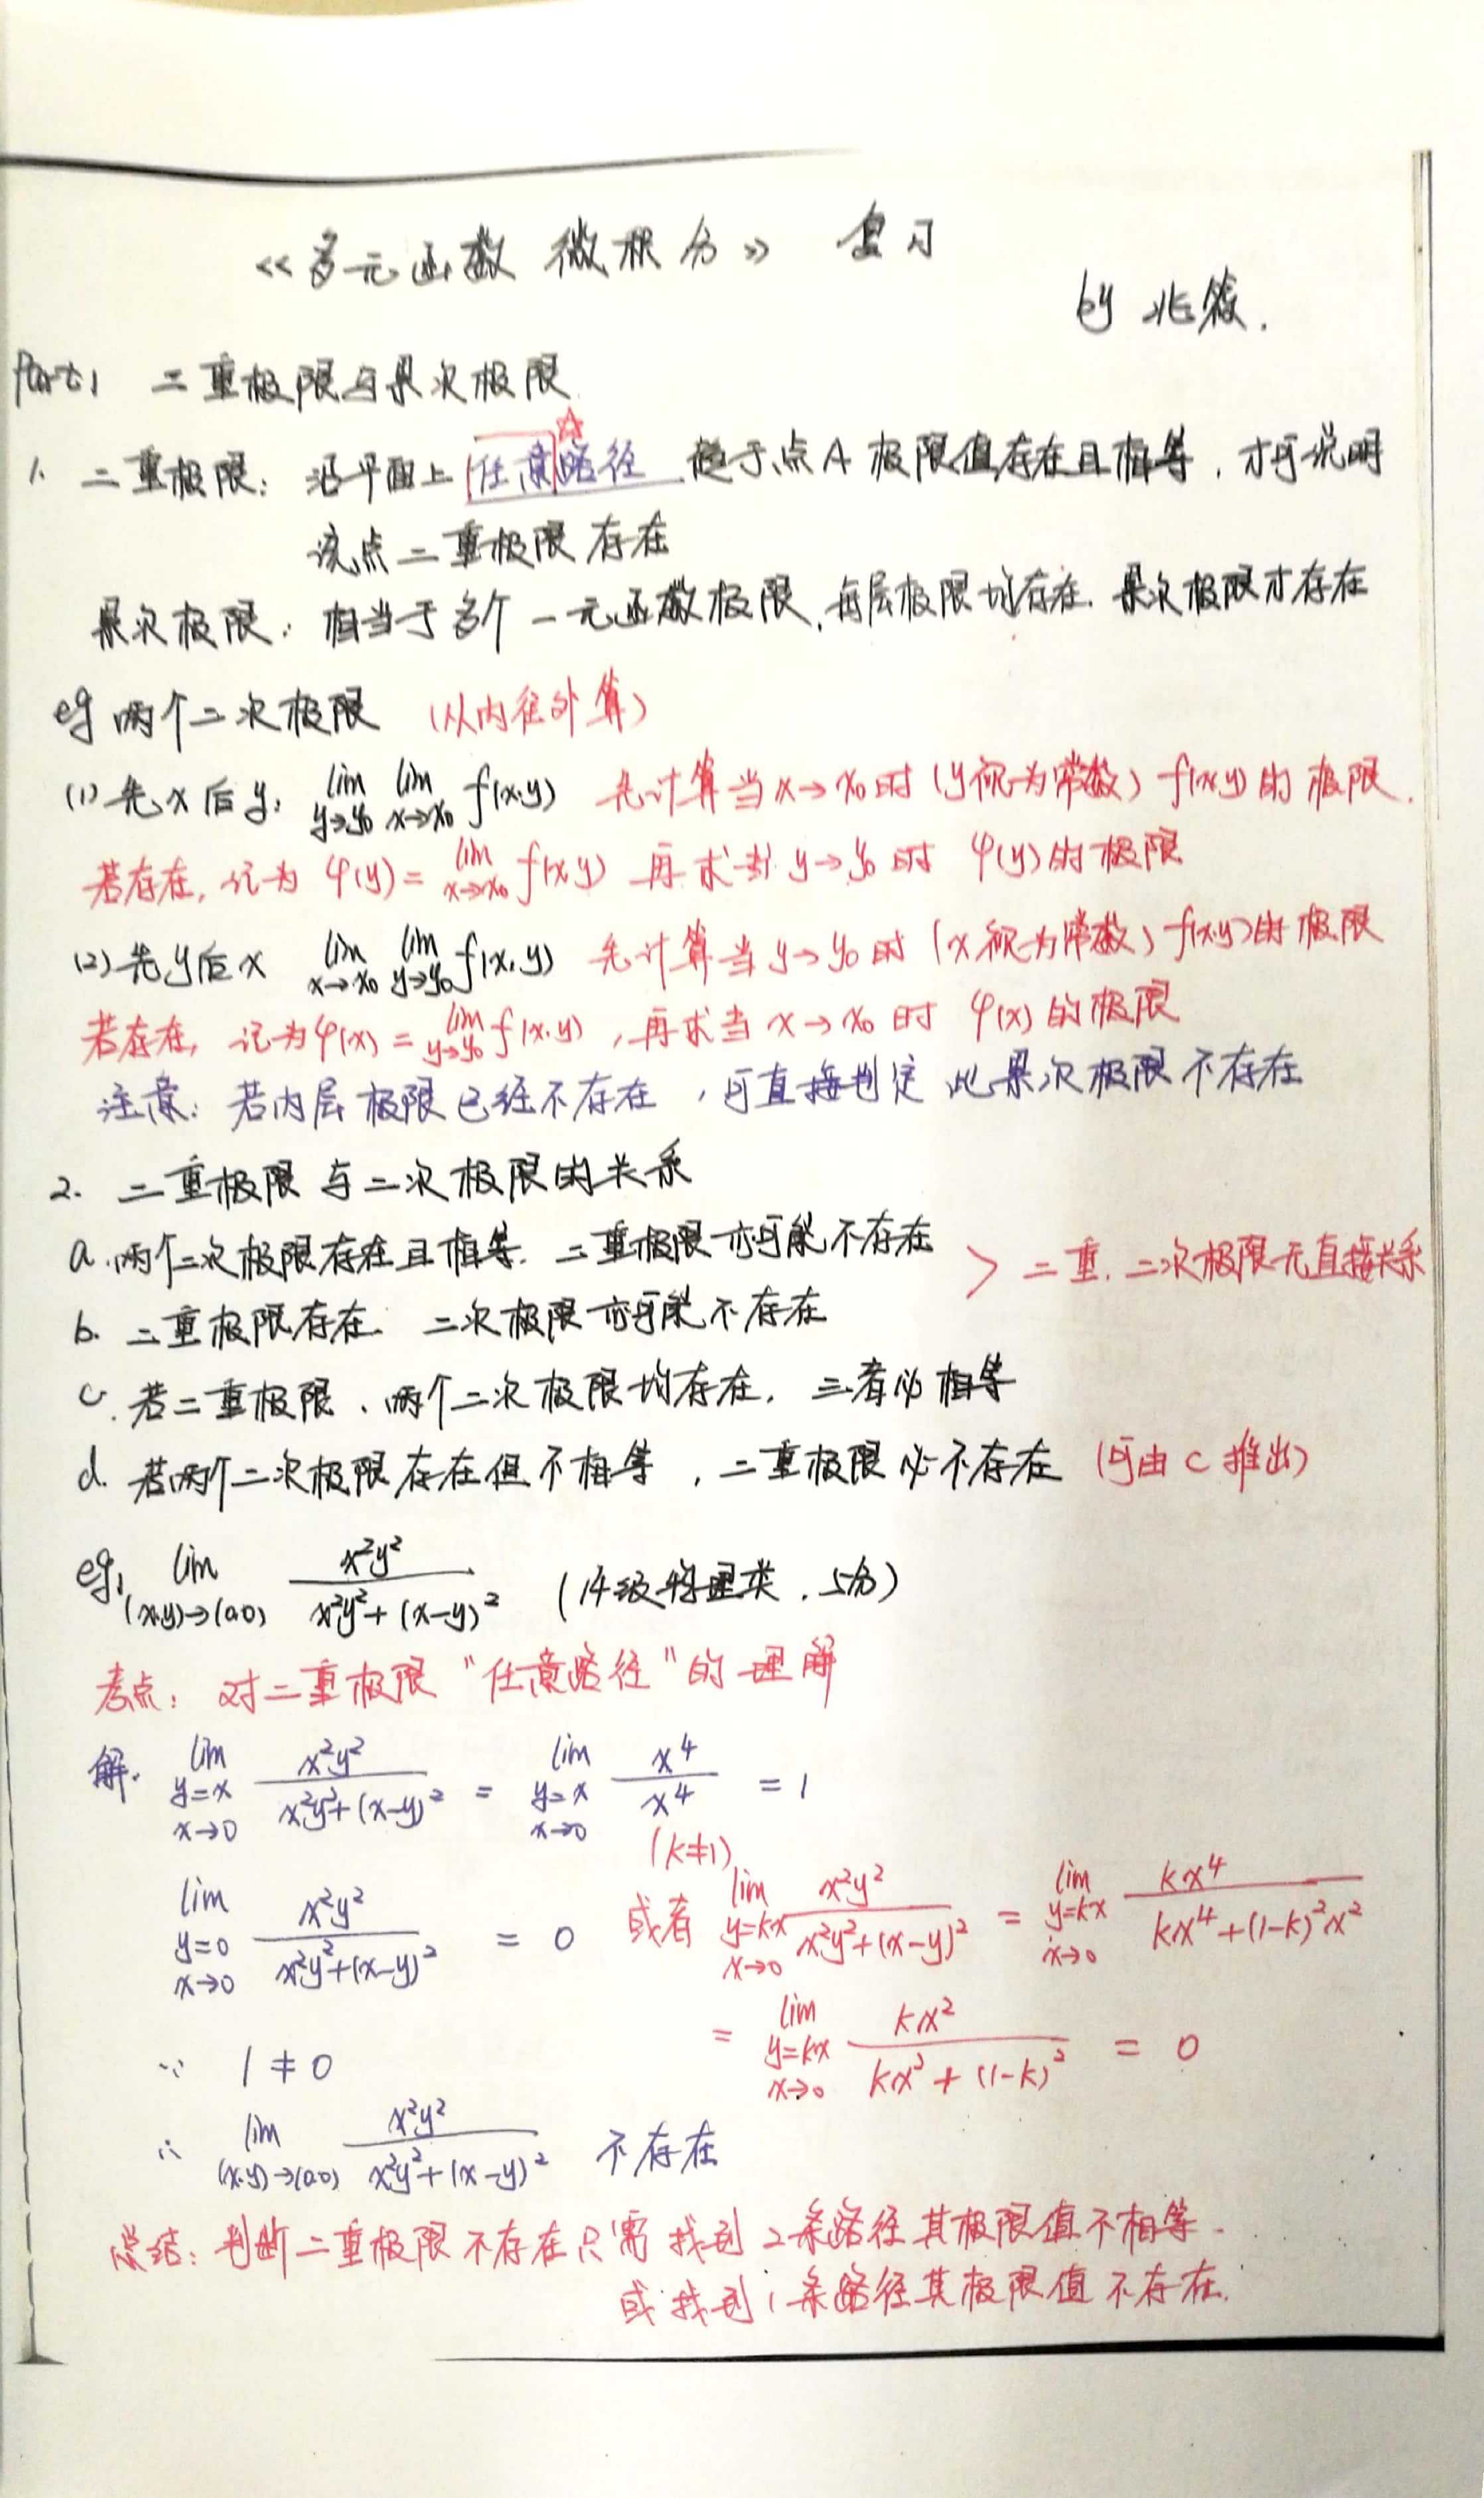 《多元函数微积分》 复习
by 兆筱.
Part1 二重极限与累次极限
1. 二重极限: 沿平面上 任意路径 趋于点A 极限值存在且相等, 才可说明
该点二重极限存在
累次极限: 相当于多个一元函数极限, 每层极限均存在. 累次极限才存在
eg 两个二次极限 (从内往外算)
(1) 先x后y: lim_{y→y₀} lim_{x→x₀} f(x,y) 先计算当x→x₀时 (y视为常数) f(x,y)的极限.
若存在, 记为 φ(y) = lim_{x→x₀} f(x,y) 再求当 y→y₀时 φ(y)的极限
(2) 先y后x lim_{x→x₀} lim_{y→y₀} f(x,y) 先计算当y→y₀时 (x视为常数) f(x,y)的极限
若存在, 记为φ(x) = lim_{y→y₀} f(x,y), 再求当x→x₀时 φ(x)的极限
注意: 若内层极限已经不存在, 可直接判定此累次极限不存在
2. 二重极限与二次极限的关系
a. 两个二次极限存在且相等. 二重极限亦可能不存在 > 二重. 二次极限无直接关系
b. 二重极限存在. 二次极限亦可能不存在
c. 若二重极限、两个二次极限均存在, 三者必相等
d. 若两个二次极限存在但不相等, 二重极限必不存在 (可由c推出)
eg1 lim_{(x,y)→(0,0)} x²y² / (x²y²+(x-y)²) (14级物理类, 5分)
考点: 对二重极限"任意路径"的理解
解. lim_{y=x, x→0} x²y² / (x²y²+(x-y)²) = lim_{y=x, x→0} x⁴ / x⁴ = 1
(k≠1)
lim_{y=0, x→0} x²y² / (x²y²+(x-y)²) = 0 或者 lim_{y=kx, x→0} x²y² / (x²y²+(x-y)²) = lim_{y=kx, x→0} kx⁴ / (kx⁴+(1-k)²x²)
= lim_{y=kx, x→0} kx² / (kx²+(1-k)²) = 0
∵ 1≠0
∴ lim_{(x,y)→(0,0)} x²y² / (x²y²+(x-y)²) 不存在
总结: 判断二重极限不存在只需找到2条路径其极限值不相等.
或找到1条路径其极限值不存在.